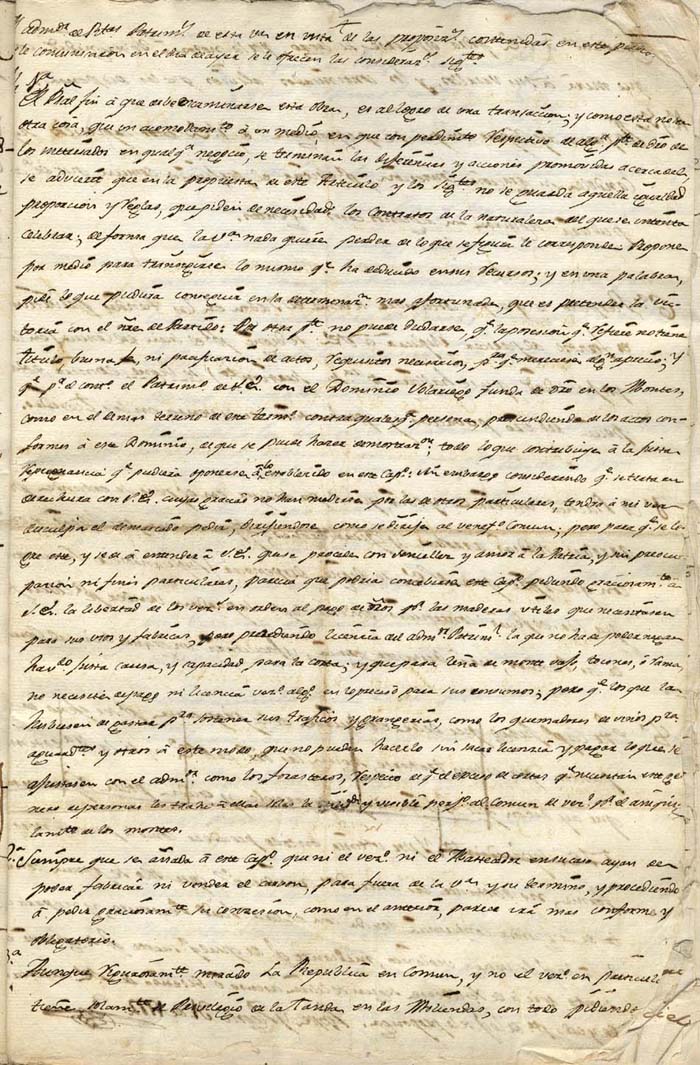 admor de Rtas Patrims de esta va en vista de las proposizs contenidas en este
le comunicaron en el dia de ayer se le ofrecen las considerazs sigtes
1a
El Rl fin á que debe examinarse esta obra, es al logro de una transaccion; y como esta no
otra cosa, que un acomodamto á un medio, en que con perdimto respectivo de algn pte de dro de
los interesados en qualqr negocio, se terminan las diferencias y acciones promovidas acerca del
se advierte que en la propuesta de este Articulo y los sigtes no se guarda aquella igualdad
proporcion y reglas, que piden de necesidad los Contratos de la naturaleza del que se intenta
celebrar; de forma que la va nada quiere perder de lo que se figura le corresponde. Propone
por medio para transigirse lo mismo qe ha deducido en sus recursos; y en una palabra,
pide lo que pudiera conseguir en la determinazn mas afortunada, que es pretender la vic-
toria con el nre de Partido: Por otra pte no puede dudarse, qe la posesion qe refiere no tiene
titulo, buena fe, ni pacificacion de actos, requisitos necesarios, pa qe merezca algn aprecio; y
qe pr el contro el Patrimo de S.E. con el Dominio Solariego funda de dro en los Montes,
como en el demas terreno de este termo contra qualesqa personas, prescindiendo de los actos con-
formes á este Dominio, de que se puede hacer demostrazn; todo lo que contribuye á la justa
repugnancia qe pudiera oponerse á lo establecido en este Capo: Sin embargo considerando qe se trata en
derechura con S.E. cuyas gracias no han medirse por las de otros particulares, tendra á mi ver
disculpa el demasiado pedir, dirigiendose como se dirije al benefo Comun; pero para qe se lo-
gre este, y se dé á entender á S.E. que se procede con sencillez y amor á la Patria, y sin preocu-
pacion ni fines particulares, parecia que podria concebirse este Capo pidiendo graciosamte á
S.E. la libertad de los vecs en orden al pago de dros pr las maderas utiles que necesitasen
para sus usos y fabricas, pero precediendo licencia del admor Patriml la que no ha de poder negar
havdo justa causa, y capacidad para la corta; y que para leña de monte vajo, tocones, ó rama
no necesite de pago ni licencia veco algo en lo preciso para sus consumos; pero qe los que la
hubiesen de gastar pa sostener sus traficos y grangerias, como los quemadores de vinos pa
aguardtes y otros á este modo, que no puedan hacerlo sin sacar licencia y pagar lo que se
ajustasen con el admor como los forasteros, respecto de qe el exceso de cortas qe necesitan este ge-
nero de personas los trahe á ellas utilidad y visible perjo al Comun de vecs pr el aniqui-
lamto de los montes.
2a Siempre que se añada á este Capo que ni el veco ni el Hacendado en su caso ayan de
poder fabricar ni vender el carbon, para fuera de la va y su termino, y procediendo
á pedir graciosamte su concesion, como en el anterior, parece irá mas conforme y
obligatorio.
3a
Aunque rigurosamte mirado La Republica en Comun, y no el veco en particular
tiene solamte el Privilegio de la Tanda en las Moliendas, con todo pidiendo